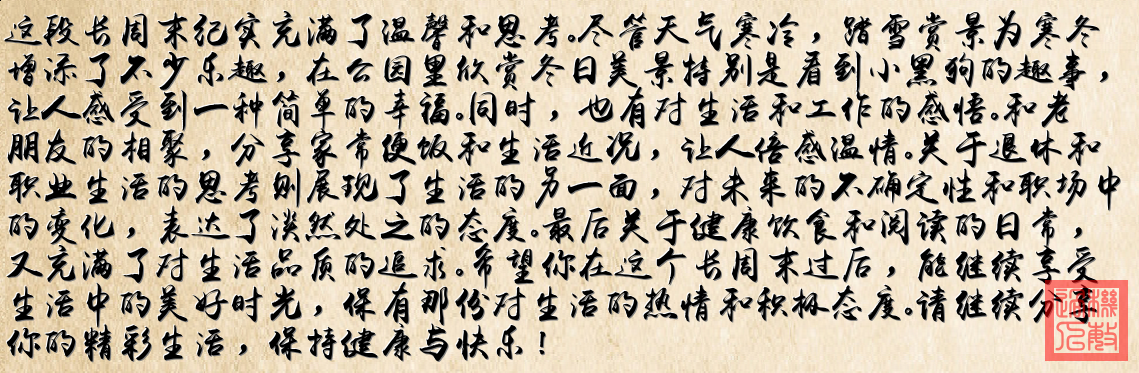 这段长周末纪实充满了温馨和思考。尽管天气寒冷，踏雪赏景为寒冬
增添了不少乐趣，在公园里欣赏冬日美景特别是看到小黑狗的趣事，
让人感受到一种简单的幸福。同时，也有对生活和工作的感悟。和老
朋友的相聚，分享家常便饭和生活近况，让人倍感温情。关于退休和
职业生活的思考则展现了生活的另一面，对未来的不确定性和职场中
的变化，表达了淡然处之的态度。最后关于健康饮食和阅读的日常，
又充满了对生活品质的追求。希望你在这个长周末过后，能继续享受
生活中的美好时光，保有那份对生活的热情和积极态度。请继续分享
你的精彩生活，保持健康与快乐！